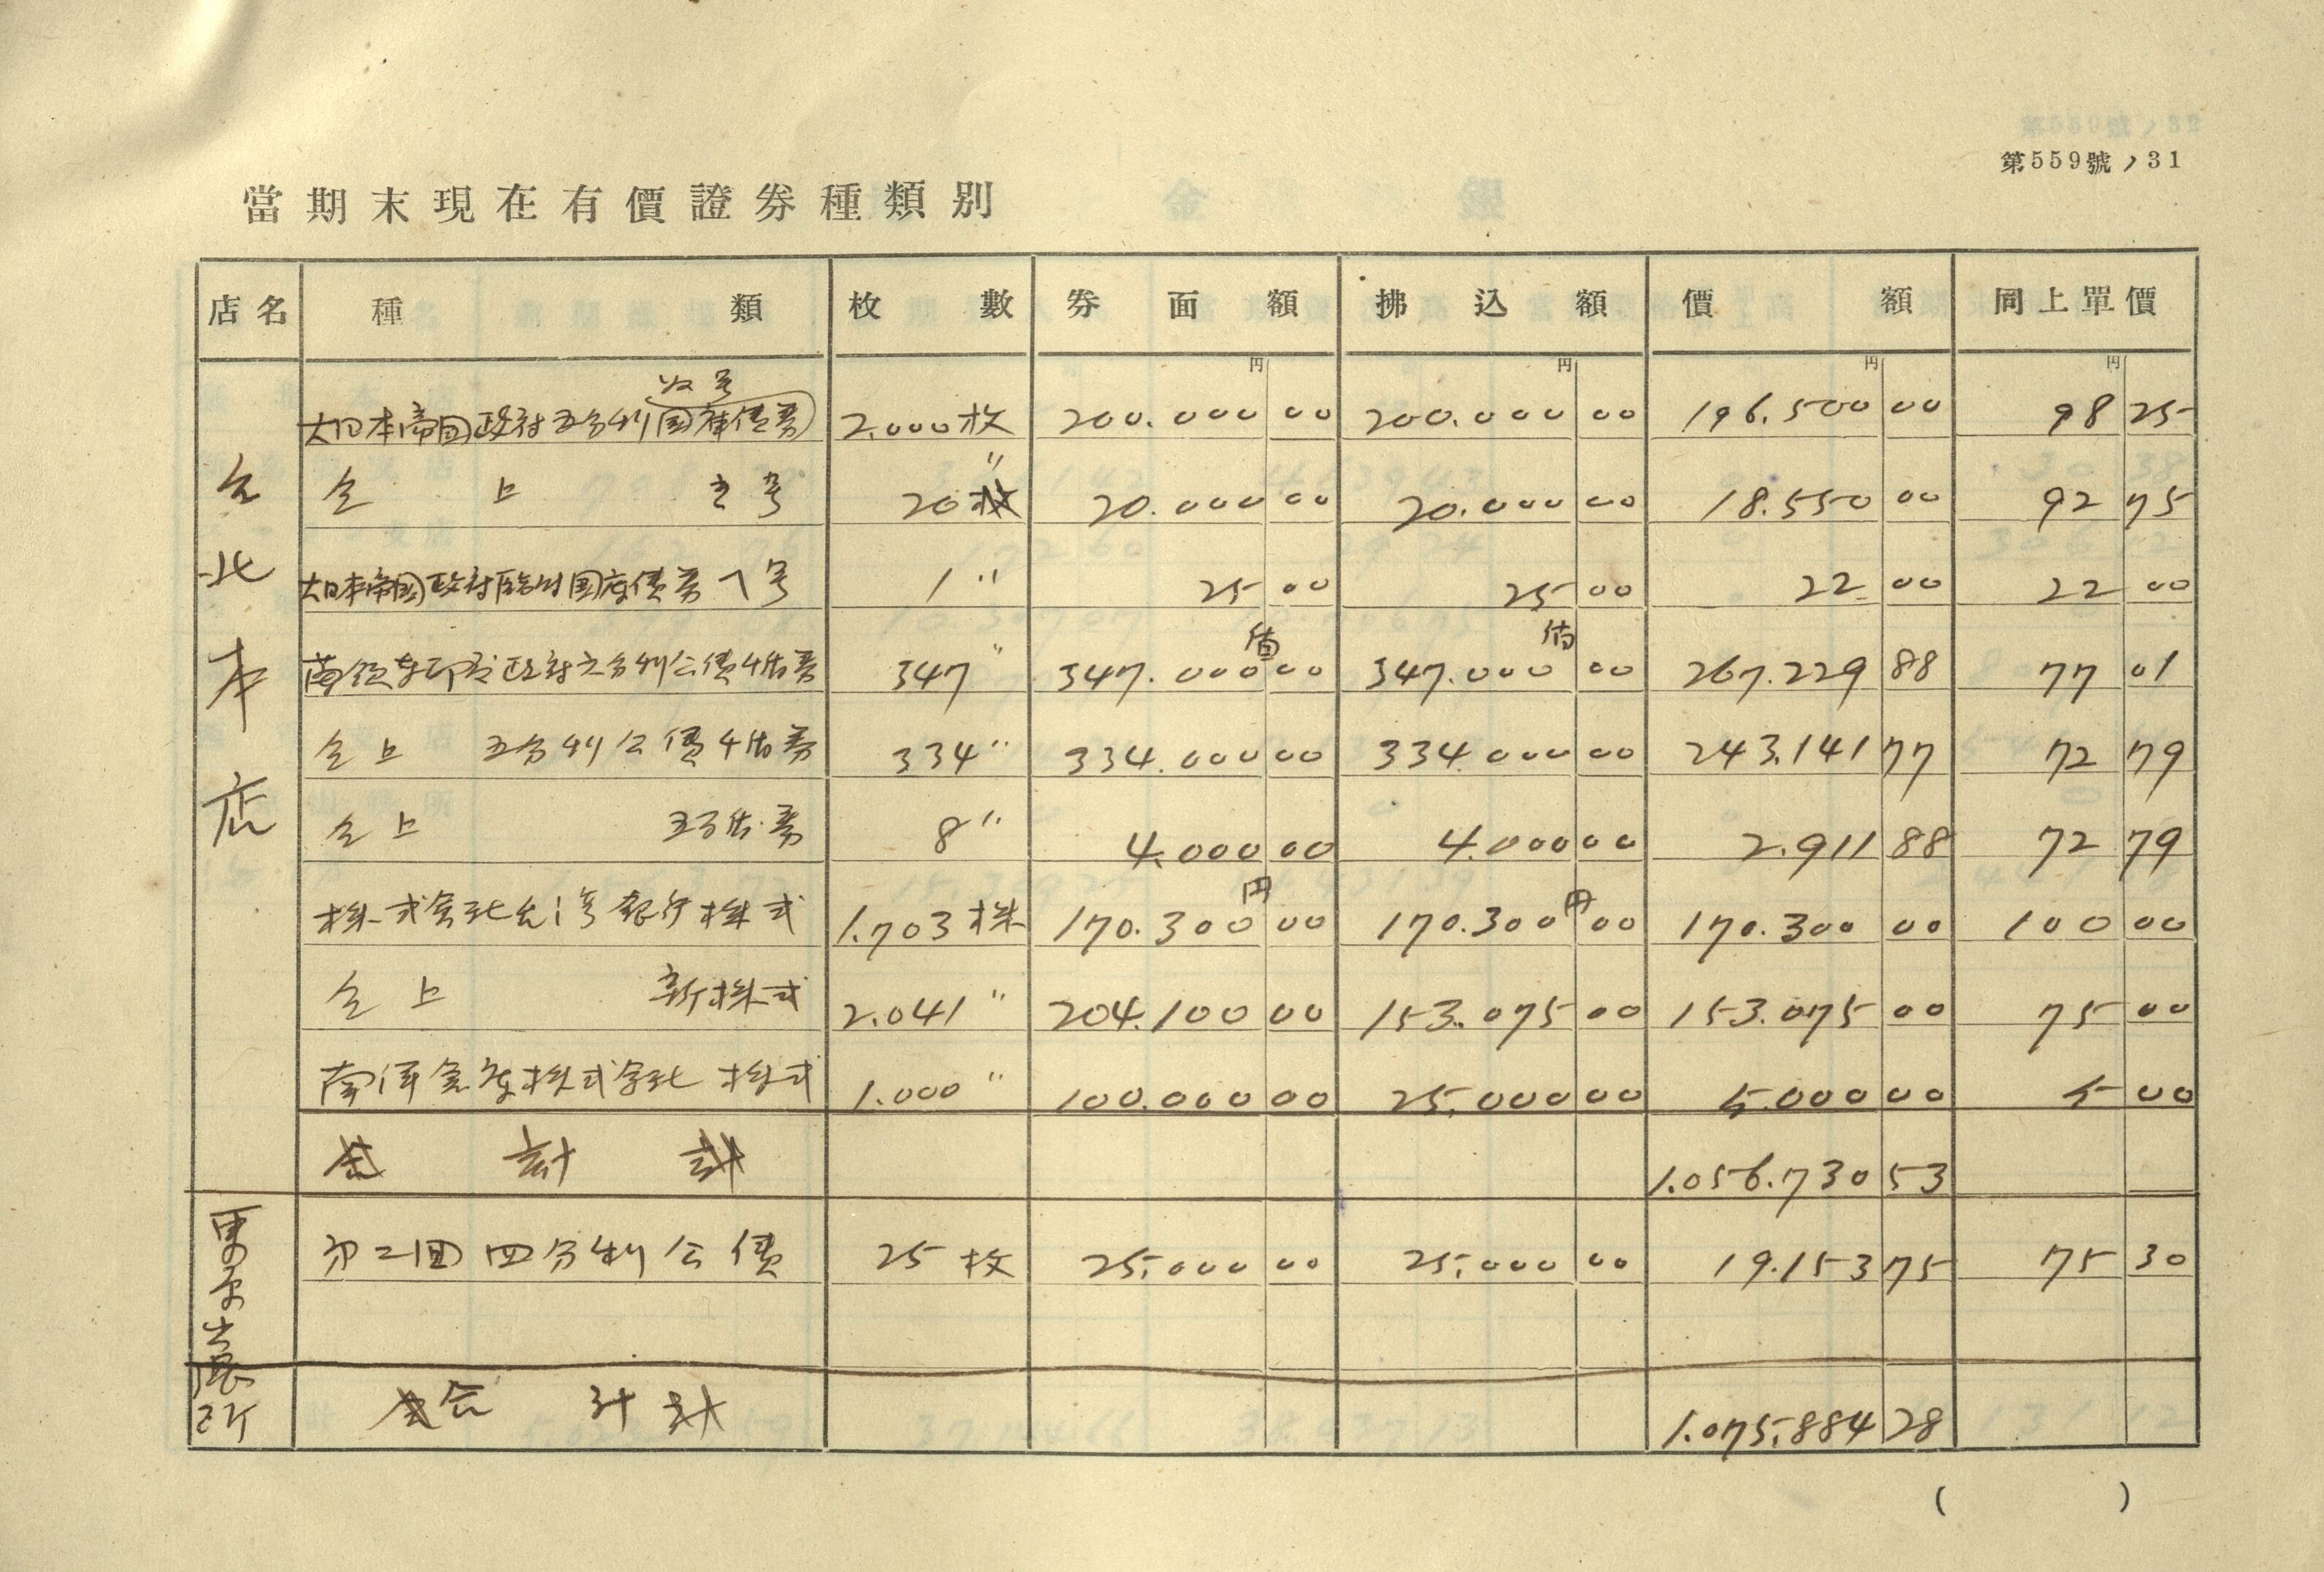 第559號ノ31
當期末現在有價證券種類別
店名 種類 枚數 券面額 拂込額 價額 同上單價
円 円 円 円
台北本店
号
大日本帝国政府五分利国庫債券 2.000枚 200.000 00 200.000 00 196.500 00 98 25
仝上 号 20〃 20.000 00 20.000 00 18.550 00 92 75
大日本帝国政府臨時国庫債券 号 1〃 25 00 25 00 22 00 22 00
盾 盾
蘭領東印度政府六分利公債千盾券 347〃 347.000 00 347.000 00 267.229 88 77 01
仝上 五分利公債千盾券 334〃 334.000 00 334.000 00 243.141 77 72 79
仝上 五百盾券 8〃 4.000 00 4.000 00 2.911 88 72 79
円 円
株式会社台湾銀行株式 1.703株 170.300 00 170.300 00 170.300 00 100 00
仝上 新株式 2.041〃 204.100 00 153.075 00 153.075 00 75 00
南洋倉庫株式会社 株式 1.000〃 100.000 00 25.000 00 5.000 00 5 00
計 1.056.730 53
出張所
第二回四分利公債 25枚 25.000 00 25.000 00 19.153 75 75 30
合計 1.075.884 28
( )